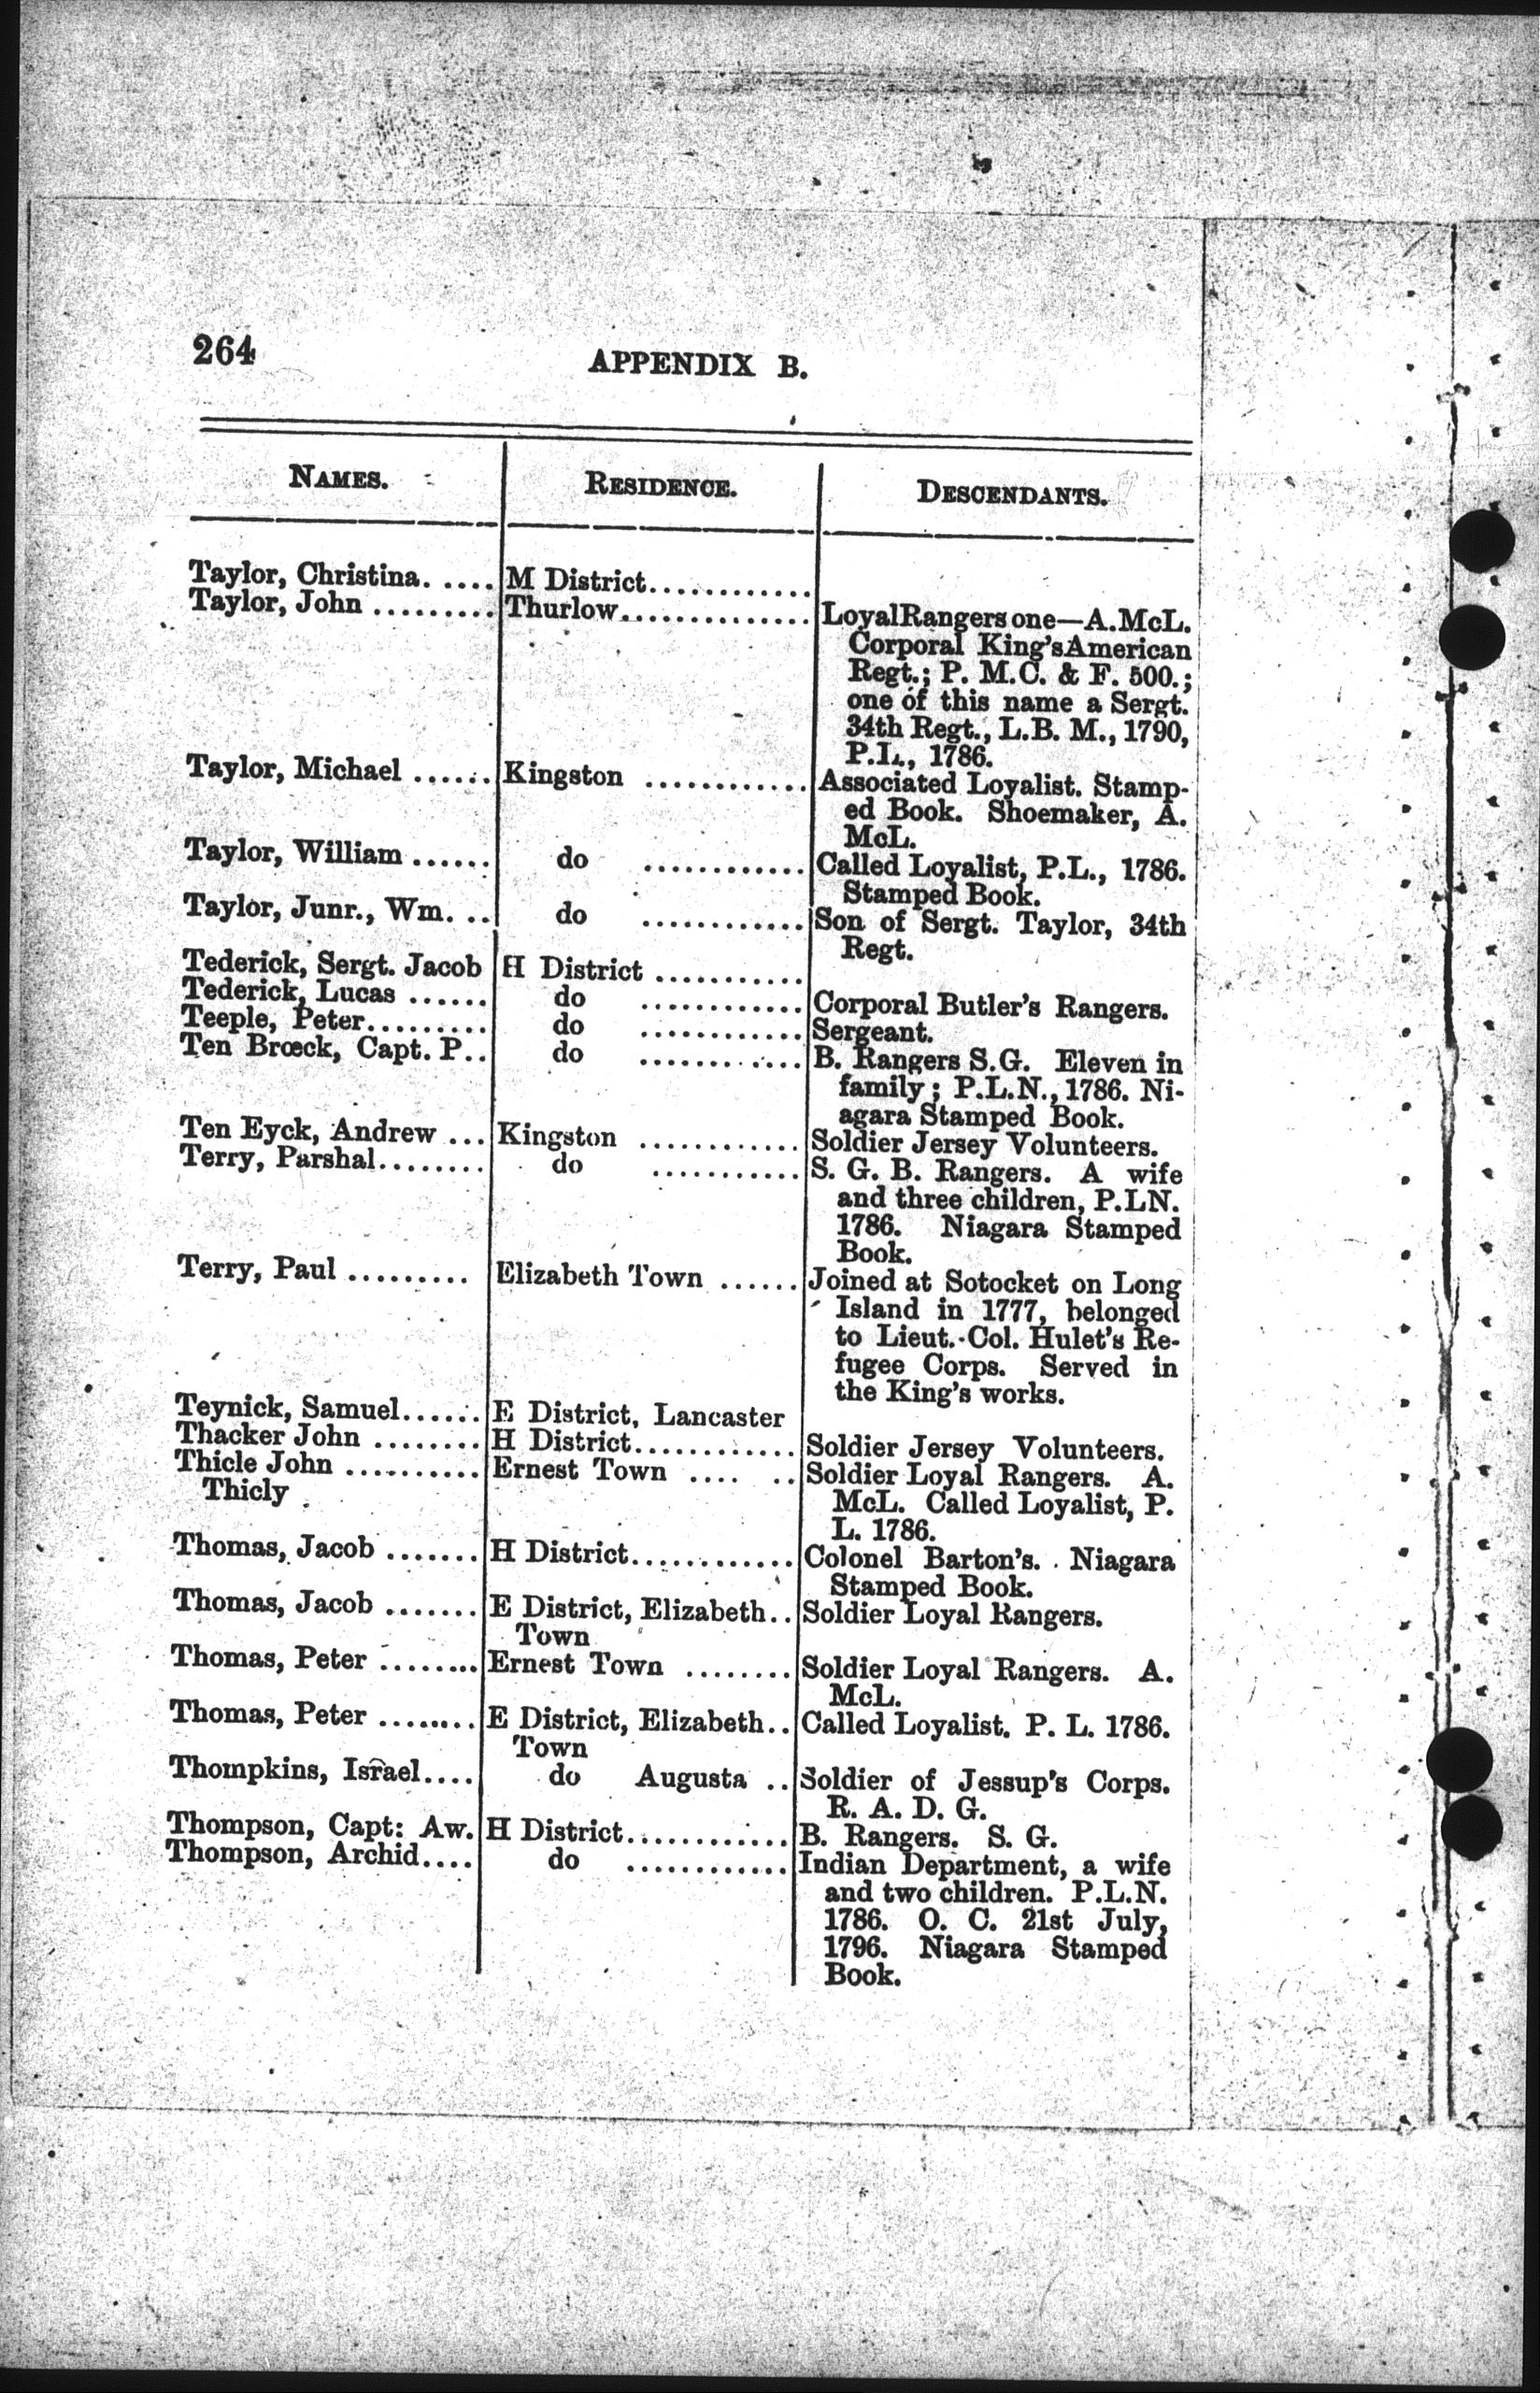 264
APPENDIX B.
NAMES. RESIDENCE. DESCENDANTS.
Taylor, Christina. .... M District............
Taylor, John ......... Thurlow.............. LoyalRangers one—A.McL.
Corporal King'sAmerican
Regt.; P. M.C. & F. 500.;
one of this name a Sergt.
34th Regt., L.B. M., 1790,
P.L., 1786.
Taylor, Michael ...... Kingston ............ Associated Loyalist. Stamp-
ed Book. Shoemaker, A.
McL.
Taylor, William ...... do ............ Called Loyalist, P.L., 1786.
Stamped Book.
Taylor, Junr., Wm. .. do ............ Son of Sergt. Taylor, 34th
Regt.
Tederick, Sergt. Jacob H District ...........
Tederick, Lucas ...... do ............ Corporal Butler's Rangers.
Teeple, Peter......... do ............ Sergeant.
Ten Brœck, Capt. P.. do ............ B. Rangers S.G. Eleven in
family; P.L.N., 1786. Ni-
agara Stamped Book.
Ten Eyck, Andrew ... Kingston ............ Soldier Jersey Volunteers.
Terry, Parshal........ do ........... S. G. B. Rangers. A wife
and three children, P.LN.
1786. Niagara Stamped
Book.
Terry, Paul ......... Elizabeth Town ...... Joined at Sotocket on Long
Island in 1777, belonged
to Lieut.-Col. Hulet's Re-
fugee Corps. Served in
the King's works.
Teynick, Samuel...... E District, Lancaster
Thacker John ........ H District............ Soldier Jersey Volunteers.
Thicle John .......... Ernest Town .... .. Soldier Loyal Rangers. A.
Thicly McL. Called Loyalist, P.
L. 1786.
Thomas, Jacob ....... H District............ Colonel Barton's. Niagara
Stamped Book.
Thomas, Jacob ....... E District, Elizabeth.. Soldier Loyal Rangers.
Town
Thomas, Peter ........ Ernest Town ........ Soldier Loyal Rangers. A.
McL.
Thomas, Peter ........ E District, Elizabeth.. Called Loyalist. P. L. 1786.
Town
Thompkins, Israel.... do Augusta .. Soldier of Jessup's Corps.
R. A. D. G.
Thompson, Capt: Aw. H District............ B. Rangers. S. G.
Thompson, Archid.... do ............ Indian Department, a wife
and two children. P.L.N.
1786. O. C. 21st July,
1796. Niagara Stamped
Book.